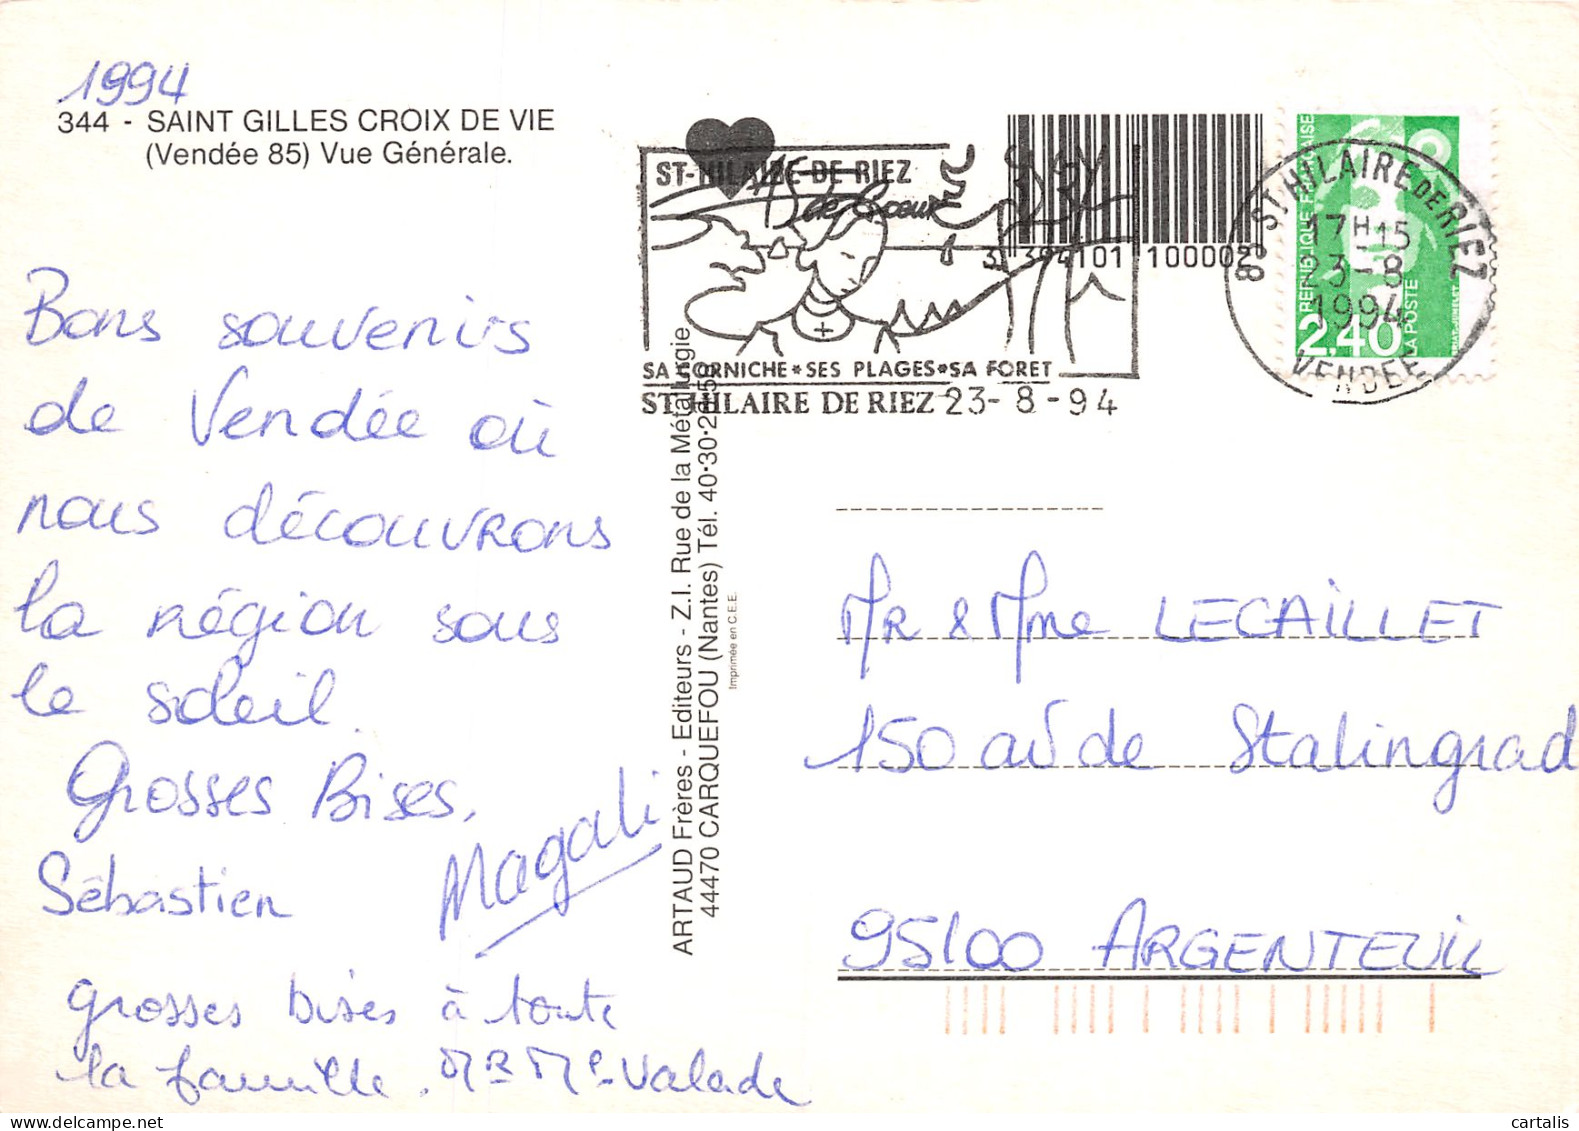 1994
344 - SAINT GILLES CROIX DE VIE
(Vendée 85) Vue Générale.
Bons souvenirs
de Vendée où
nous découvrons
la région sous
le soleil.
Grosses Bises,
Sébastien
Magali
grosses bises à toute
la famille. MR Me Valade
ARTAUD Frères - Editeurs - Z.I. Rue de la Métallurgie
44470 CARQUEFOU (Nantes) Tél. 40·30·
Imprimée en C.E.E.
ST-HILAIRE-DE-RIEZ
de Coeur
SA CORNICHE * SES PLAGES * SA FORET
ST HILAIRE DE RIEZ 23-8-94
3 394101 100002
85 ST HILAIRE DE RIEZ
17H15
23-8
1994
VENDEE
REPUBLIQUE FRANÇAISE
2,40
LA POSTE
MR & Mme LECAILLET
150 av de Stalingrad
95100 ARGENTEUIL
cartalis